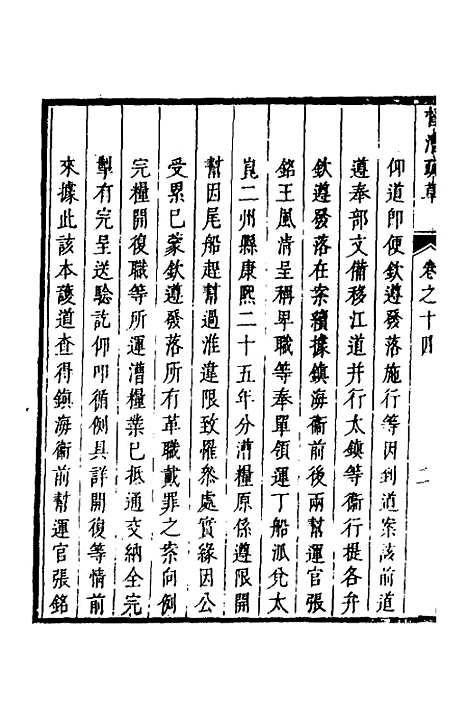 督漕疏草
卷之十四
二
仰道即便欽遵發落施行等因到道案該前道
遵奉部文備移江道并行太鎮等衞行提各弁
欽遵發落在案續據鎮海衞前後兩幫運官張
銘王風清呈稱卑職等奉單領運丁船派兌太
崑二州縣康熙二十五年分漕糧原係遵限開
幫因尾船趕幫過淮違限致罹叅處實緣因公
受累已蒙欽遵發落所有革職戴罪之案向例
完糧開復職等所運漕糧業已抵通交納全完
掣有完呈送驗訖仰叩循例具詳開復等情前
來據此該本護道查得鎮海衞前幫運官張銘